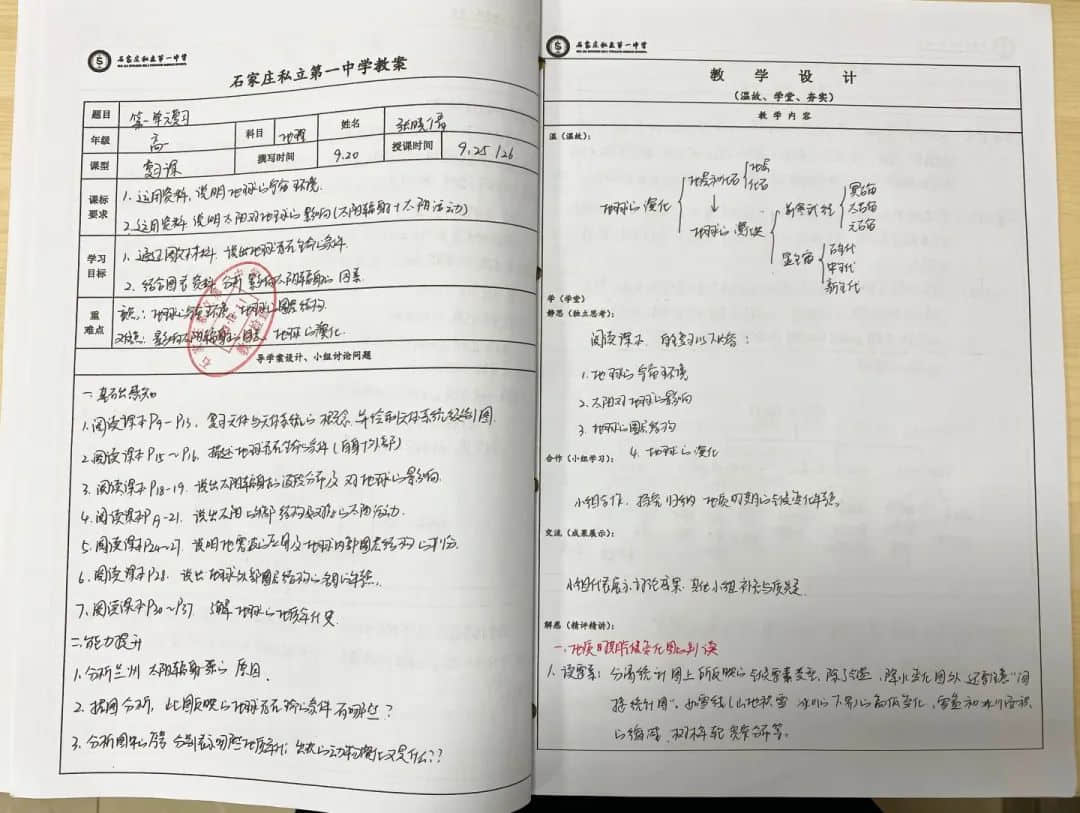 石家庄私立第一中学
石家庄私立第一中学教案
题目 第一单元复习
年级 高一 科目 地理 姓名 张晓倩
课型 复习课 撰写时间 9.20 授课时间 9.25/26
课标要求
1. 运用资料,说明地球的宇宙环境.
2. 运用资料 说明太阳对地球的影响(太阳辐射+太阳活动)
学习目标
1. 通过图文材料 说出地球存在生命的条件.
2. 结合图表资料 分析影响太阳辐射的因素.
重难点
重点: 地球的宇宙环境 地球的圈层结构
难点: 影响太阳辐射的因素、地球的演化.
导学案设计、小组讨论问题
一、基础感知
1. 阅读课本P9-P13, 复习天体与天体系统的概念,并绘制天体系统级别图.
2. 阅读课本P15~P16. 描述地球存在生命的条件(自身+外部)
3. 阅读课本P18-19. 说出太阳辐射的 分布及对地球的影响.
4. 阅读课本P -21. 说出太阳的外部结构及对应的太阳活动.
5. 阅读课本P24~27. 说明地震波的应用及地球内部圈层结构的划分.
6. 阅读课本P28. 说出地球外部圈层结构的 特点.
7. 阅读课本P30~P37. 了解地球的地质年代史.
二、能力提升
1. 分析兰州太阳辐射 的原因.
2. 据图分析, 此图反映的地球存在生命的条件有哪些?
3. 分析图中的 分别表示哪些地质年代; 出现的动植物 又是什么??
石家庄私立第一中学
教 学 设 计
(温故、学堂、夯实)
教 学 内 容
温(温故):
地球的演化
地层和化石 地层
化石
↓
地球的演化 前寒武纪 冥古宙
太古宙
元古宙
显生宙 古生代
中生代
新生代
学(学堂)
静思(独立思考):
阅读课本 自主复习以下内容:
1. 地球的宇宙环境
2. 太阳对地球的影响
3. 地球的圈层结构
合作(小组学习): 4. 地球的演化
小组合作, 探究归纳 地质时期的气候变化特点.
交流(成果展示):
小组代表展示讨论成果, 其他小组补充与质疑
解惑(精评精讲):
一、地质时期气候变化图的判读
1. 读要素: 分清统计图上所反映的气候要素类型, 除气温、降水变化图外 还要注意"间
接统计图", 如雪线(山地积雪 冰川的下界)的高低变化, 雪盖和冰川面积
的缩减、树木年轮 宽窄等.